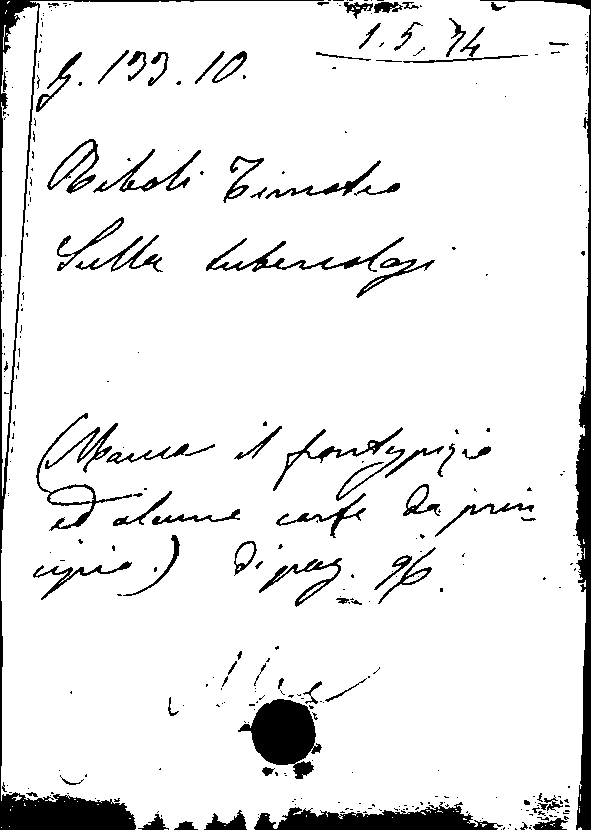 1.5.34
G. 133.10.
Riboli Timoteo
Sulla tubercologi
(Manca il frontispizio
ed alcune carte da prin-
cipio.) di pag. 96.